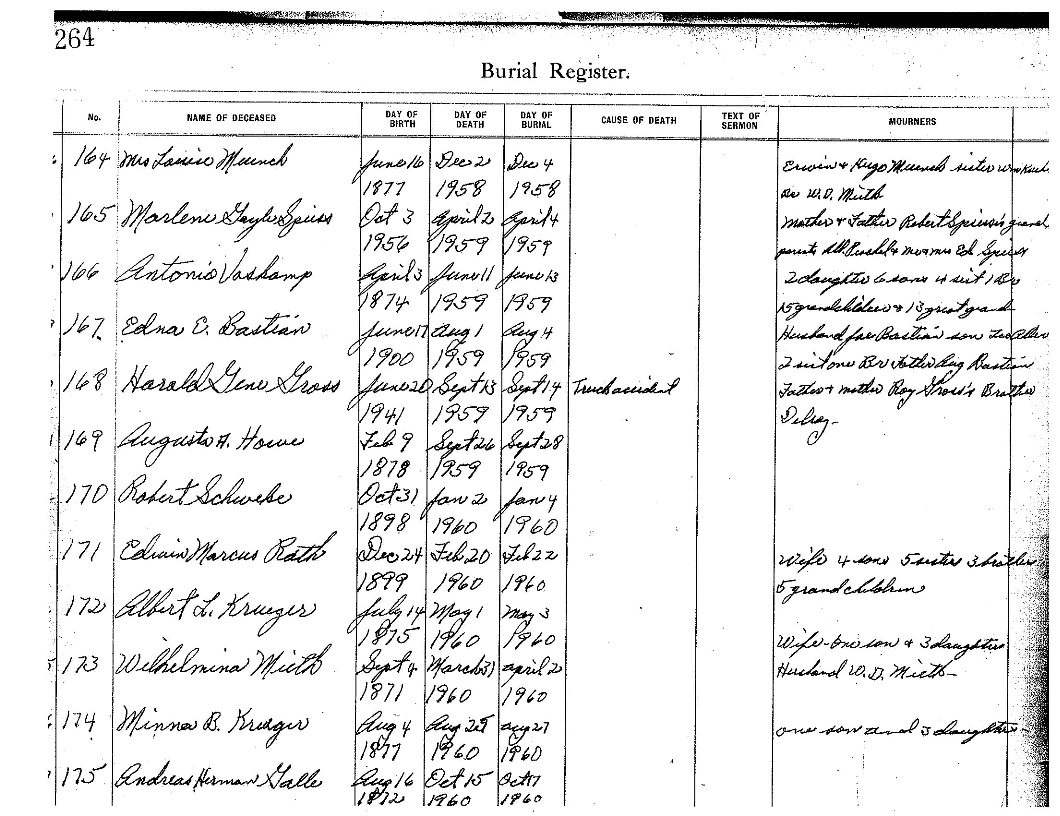 264
Burial Register.
No. NAME OF DECEASED DAY OF BIRTH DAY OF DEATH DAY OF BURIAL CAUSE OF DEATH TEXT OF SERMON MOURNERS
164 Mrs Louise Muench June 16 Dec 2 Dec 4 Erwin & Hugo Muench sister
1877 1958 1958 W.D. Mieth
165 Marlene Gayle Spiess Oct 3 April 2 April 4 Mother & Father Robert grand
1956 1959 1959 parents & Mr & Mrs Ed
166 Antonio Vaskamp April 3 June 11 June 13 2 daughter 6 sons 4 sist 1 Br
1874 1959 1959 15 grandchildren & 13 great grand
167 Edna E. Bastian June 17 Aug 1 Aug 4 Husband Joe Bastian son
1900 1959 1959 2 sist one Br Father Aug Bastian
168 Harald Gene Gross June 20 Sept 13 Sept 14 Truck accident Father & mother Roy Gross's Brother
1941 1959 1959 Delroy-
169 Augusta A. Howe Feb 9 Sept 26 Sept 28
1878 1959 1959
170 Robert Schwebe Oct 31 Jan 2 Jan 4
1898 1960 1960
171 Edwin Marcus Rath Dec 24 Feb 20 Feb 22 Wife 4 sons 5 sisters 3 brothers
1899 1960 1960 5 grandchildren
172 Albert L. Krueger July 14 May 1 May 3
1875 1960 1960 Wife - One son & 3 daughters
173 Wilhelmina Mieth Sept 4 March 31 April 2 Husband W.D. Mieth-
1871 1960 1960
174 Minna B. Krueger Aug 4 Aug 25 Aug 27 one son and 3 daughters-
1877 1960 1960
175 Andreas Herman Galle Aug 16 Oct 15 Oct 17
1872 1960 1960